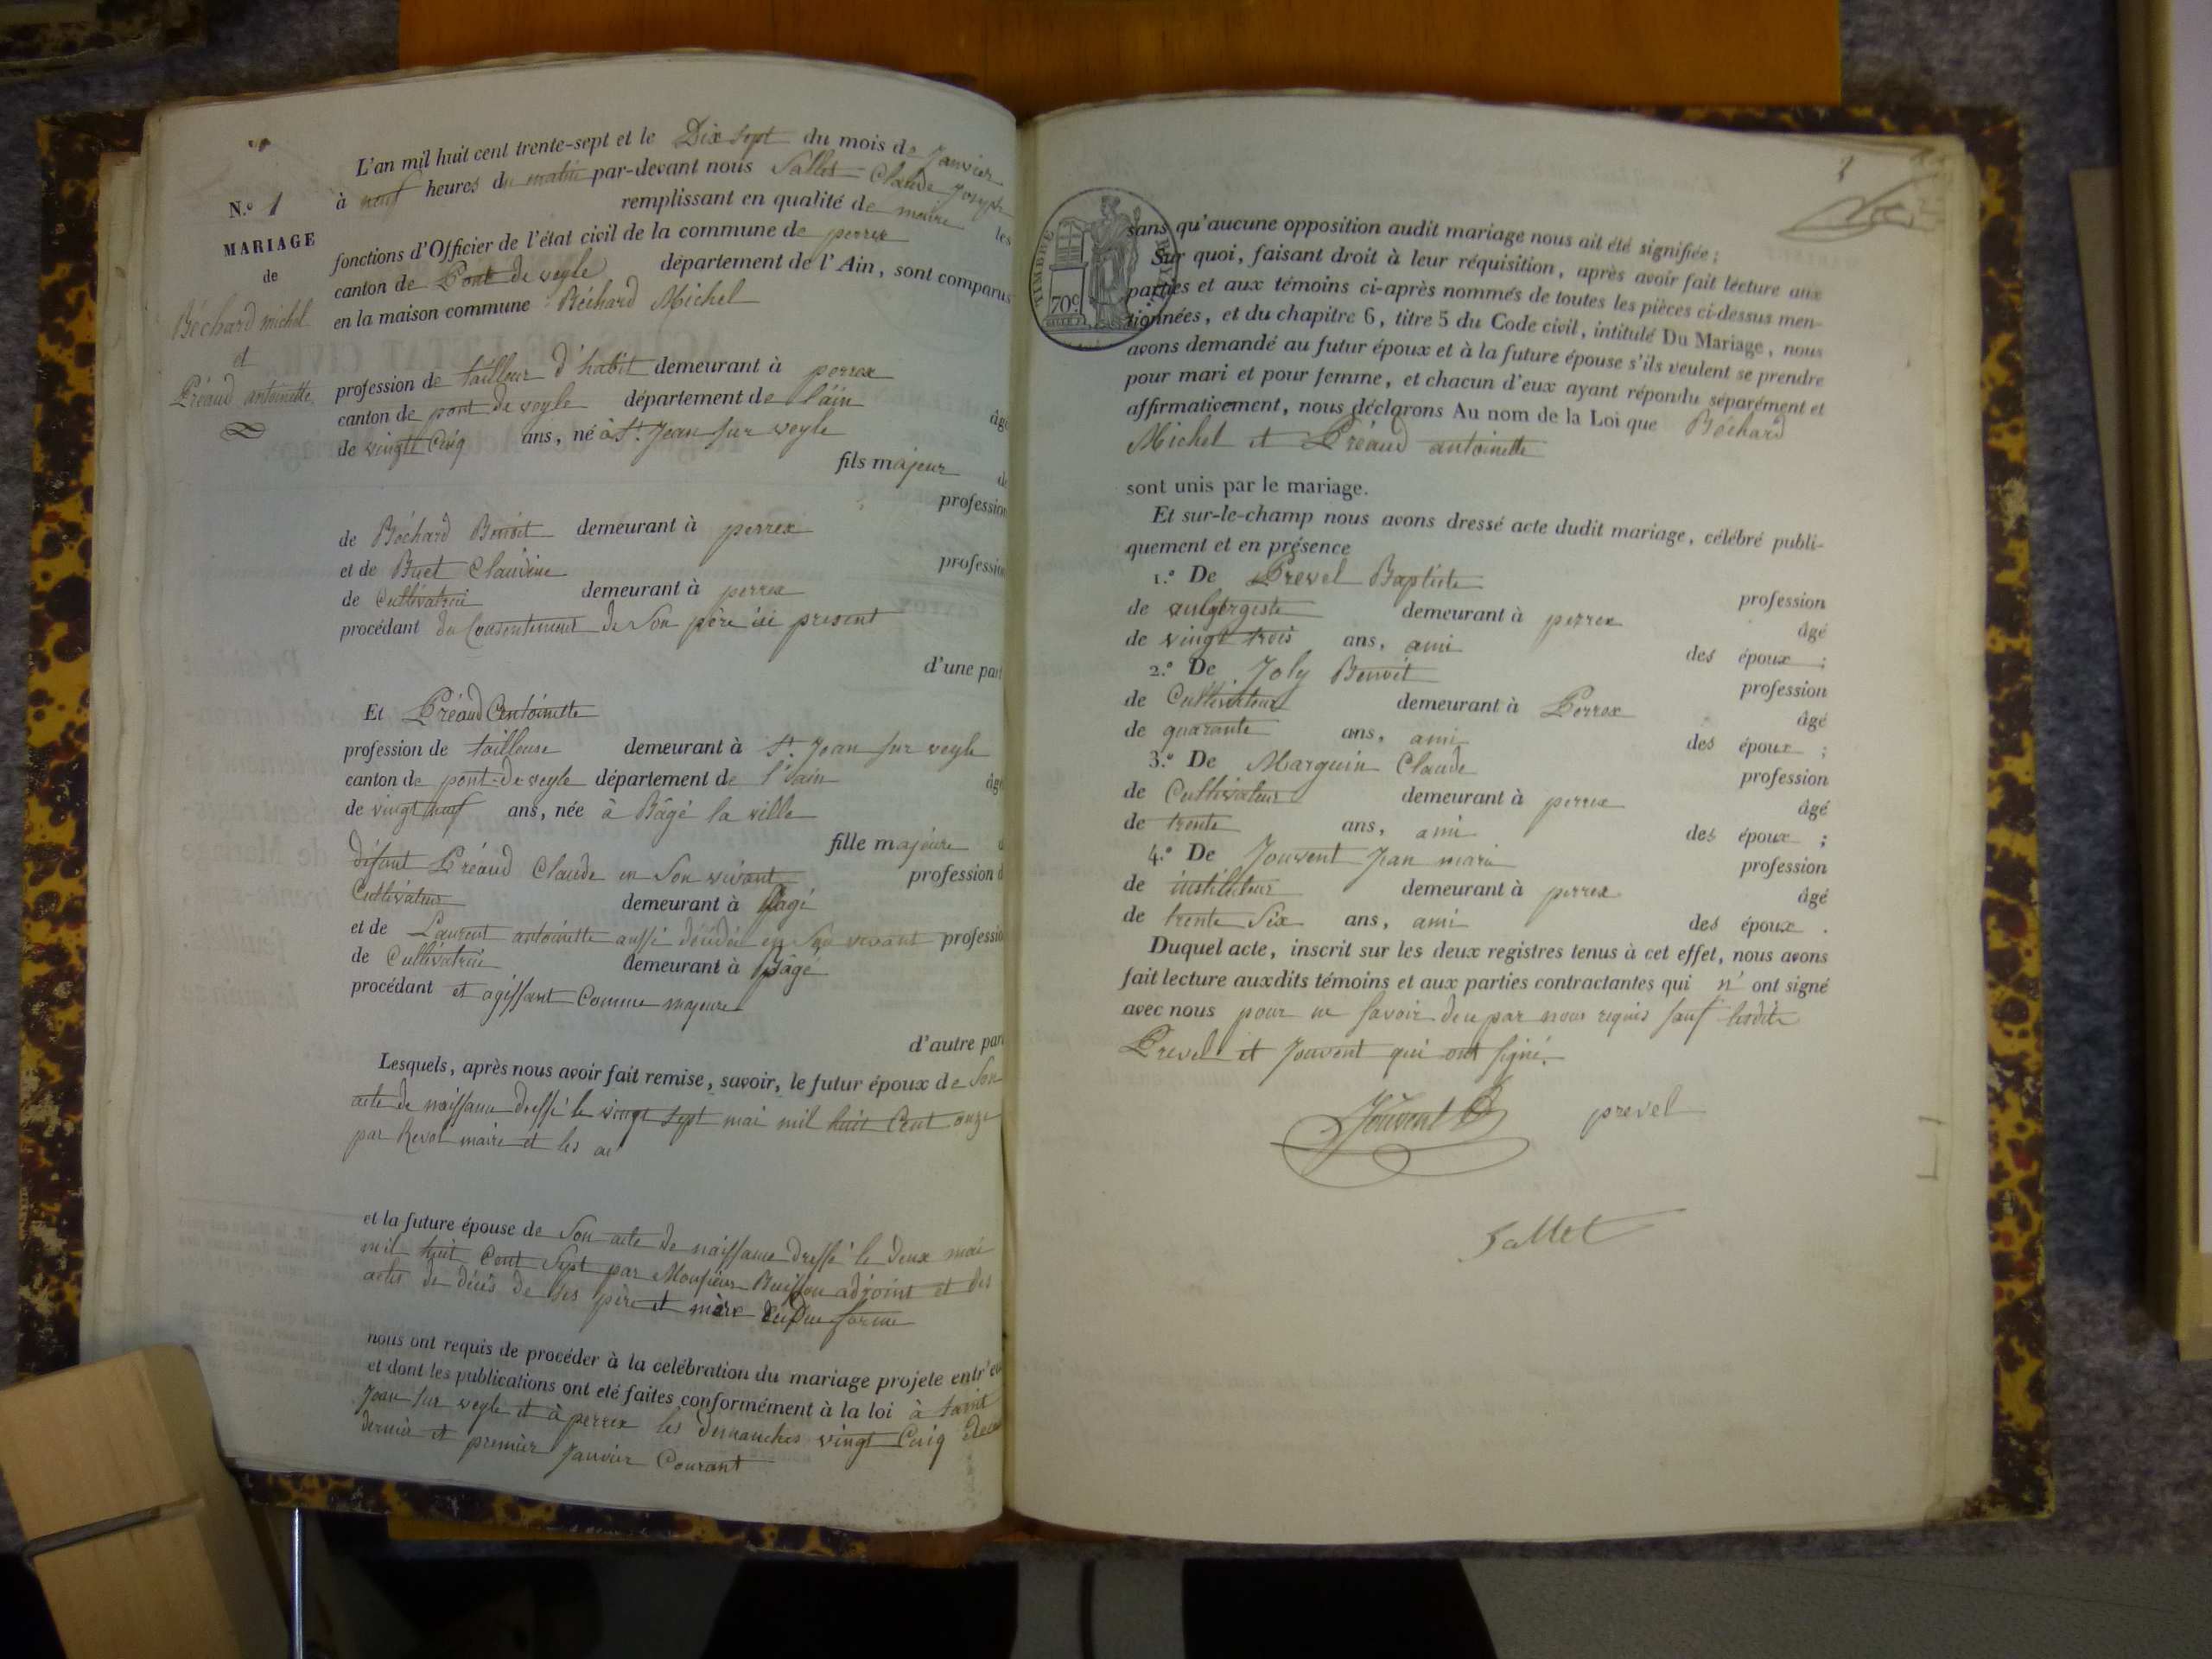 L'an mil huit cent trente-sept et le Dix sept du mois de Janvier
à neuf heures du matin par-devant nous Sallet Claude Joseph
remplissant en qualité de maire les
fonctions d'Officier de l'état civil de la commune de perrex
canton de Pont de veyle département de l'Ain, sont comparus
en la maison commune Béchard Michel
N.º 1
MARIAGE
de
Béchard michel
et
Préaud antoinette
profession de tailleur d'habit demeurant à perrex
canton de pont de veyle département de l'ain âgé
de vingt Cinq ans, né à St. Jean sur veyle
fils majeur de
profession
de Béchard Benoit demeurant à perrex
et de Buet Claudine profession
de Cultivatrice demeurant à perrex
procédant du Consentement de Son père ici present
d'une part
Et Préaud Antoinette
profession de tailleuse demeurant à St. Jean sur veyle
canton de pont-de-veyle département de l'ain âgé
de vingt neuf ans, née à Bâgé la ville
fille majeure d
défunt Préaud Claude en Son vivant profession d
Cultivateur demeurant à Bâgé
et de Laurent antoinette aussi décédée en Son vivant professio
de Cultivatrice demeurant à Bâgé
procédant et agissant Comme majeure
d'autre part
Lesquels, après nous avoir fait remise, savoir, le futur époux de Son
acte de naissance dressé le vingt sept mai mil huit Cent onze
par Revol maire et les ac
et la future épouse de Son acte de naissance dressé le deux mai
mil huit Cent Sept par Monsieur Buisson adjoint et des
actes de décès de ses père et mère en due forme
nous ont requis de procéder à la célébration du mariage projeté entr'eu
et dont les publications ont été faites conformément à la loi à Saint
Jean sur veyle et à perrex les dimanches vingt Cinq Dece
dernier et premier Janvier Courant
TIMBRE
ROYAL
70 c
sans qu'aucune opposition audit mariage nous ait été signifiée;
Sur quoi, faisant droit à leur réquisition, après avoir fait lecture aux
parties et aux témoins ci-après nommés de toutes les pièces ci-dessus men-
tionnées, et du chapitre 6, titre 5 du Code civil, intitulé Du Mariage, nous
avons demandé au futur époux et à la future épouse s'ils veulent se prendre
pour mari et pour femme, et chacun d'eux ayant répondu séparément et
affirmativement, nous déclarons Au nom de la Loi que Béchard
Michel et Préaud antoinette
sont unis par le mariage.
Et sur-le-champ nous avons dressé acte dudit mariage, célébré publi-
quement et en présence
1.º De Prevel Baptiste profession
de aubergiste demeurant à perrex âgé
de vingt trois ans, ami des époux ;
2.º De Joly Benoit profession
de Cultivateur demeurant à Perrex âgé
de quarante ans, ami des époux ;
3.º De Marguin Claude profession
de Cultivateur demeurant à perrex âgé
de trente ans, ami des époux ;
4.º De Jouvent Jean marie profession
de instituteur demeurant à perrex âgé
de trente Six ans, ami des époux .
Duquel acte, inscrit sur les deux registres tenus à cet effet, nous avons
fait lecture auxdits témoins et aux parties contractantes qui n' ont signé
avec nous pour ne savoir de ce par nous requis sauf lesdits
Prevel et Jouvent qui ont signé.
Jouvent prevel
Sallet